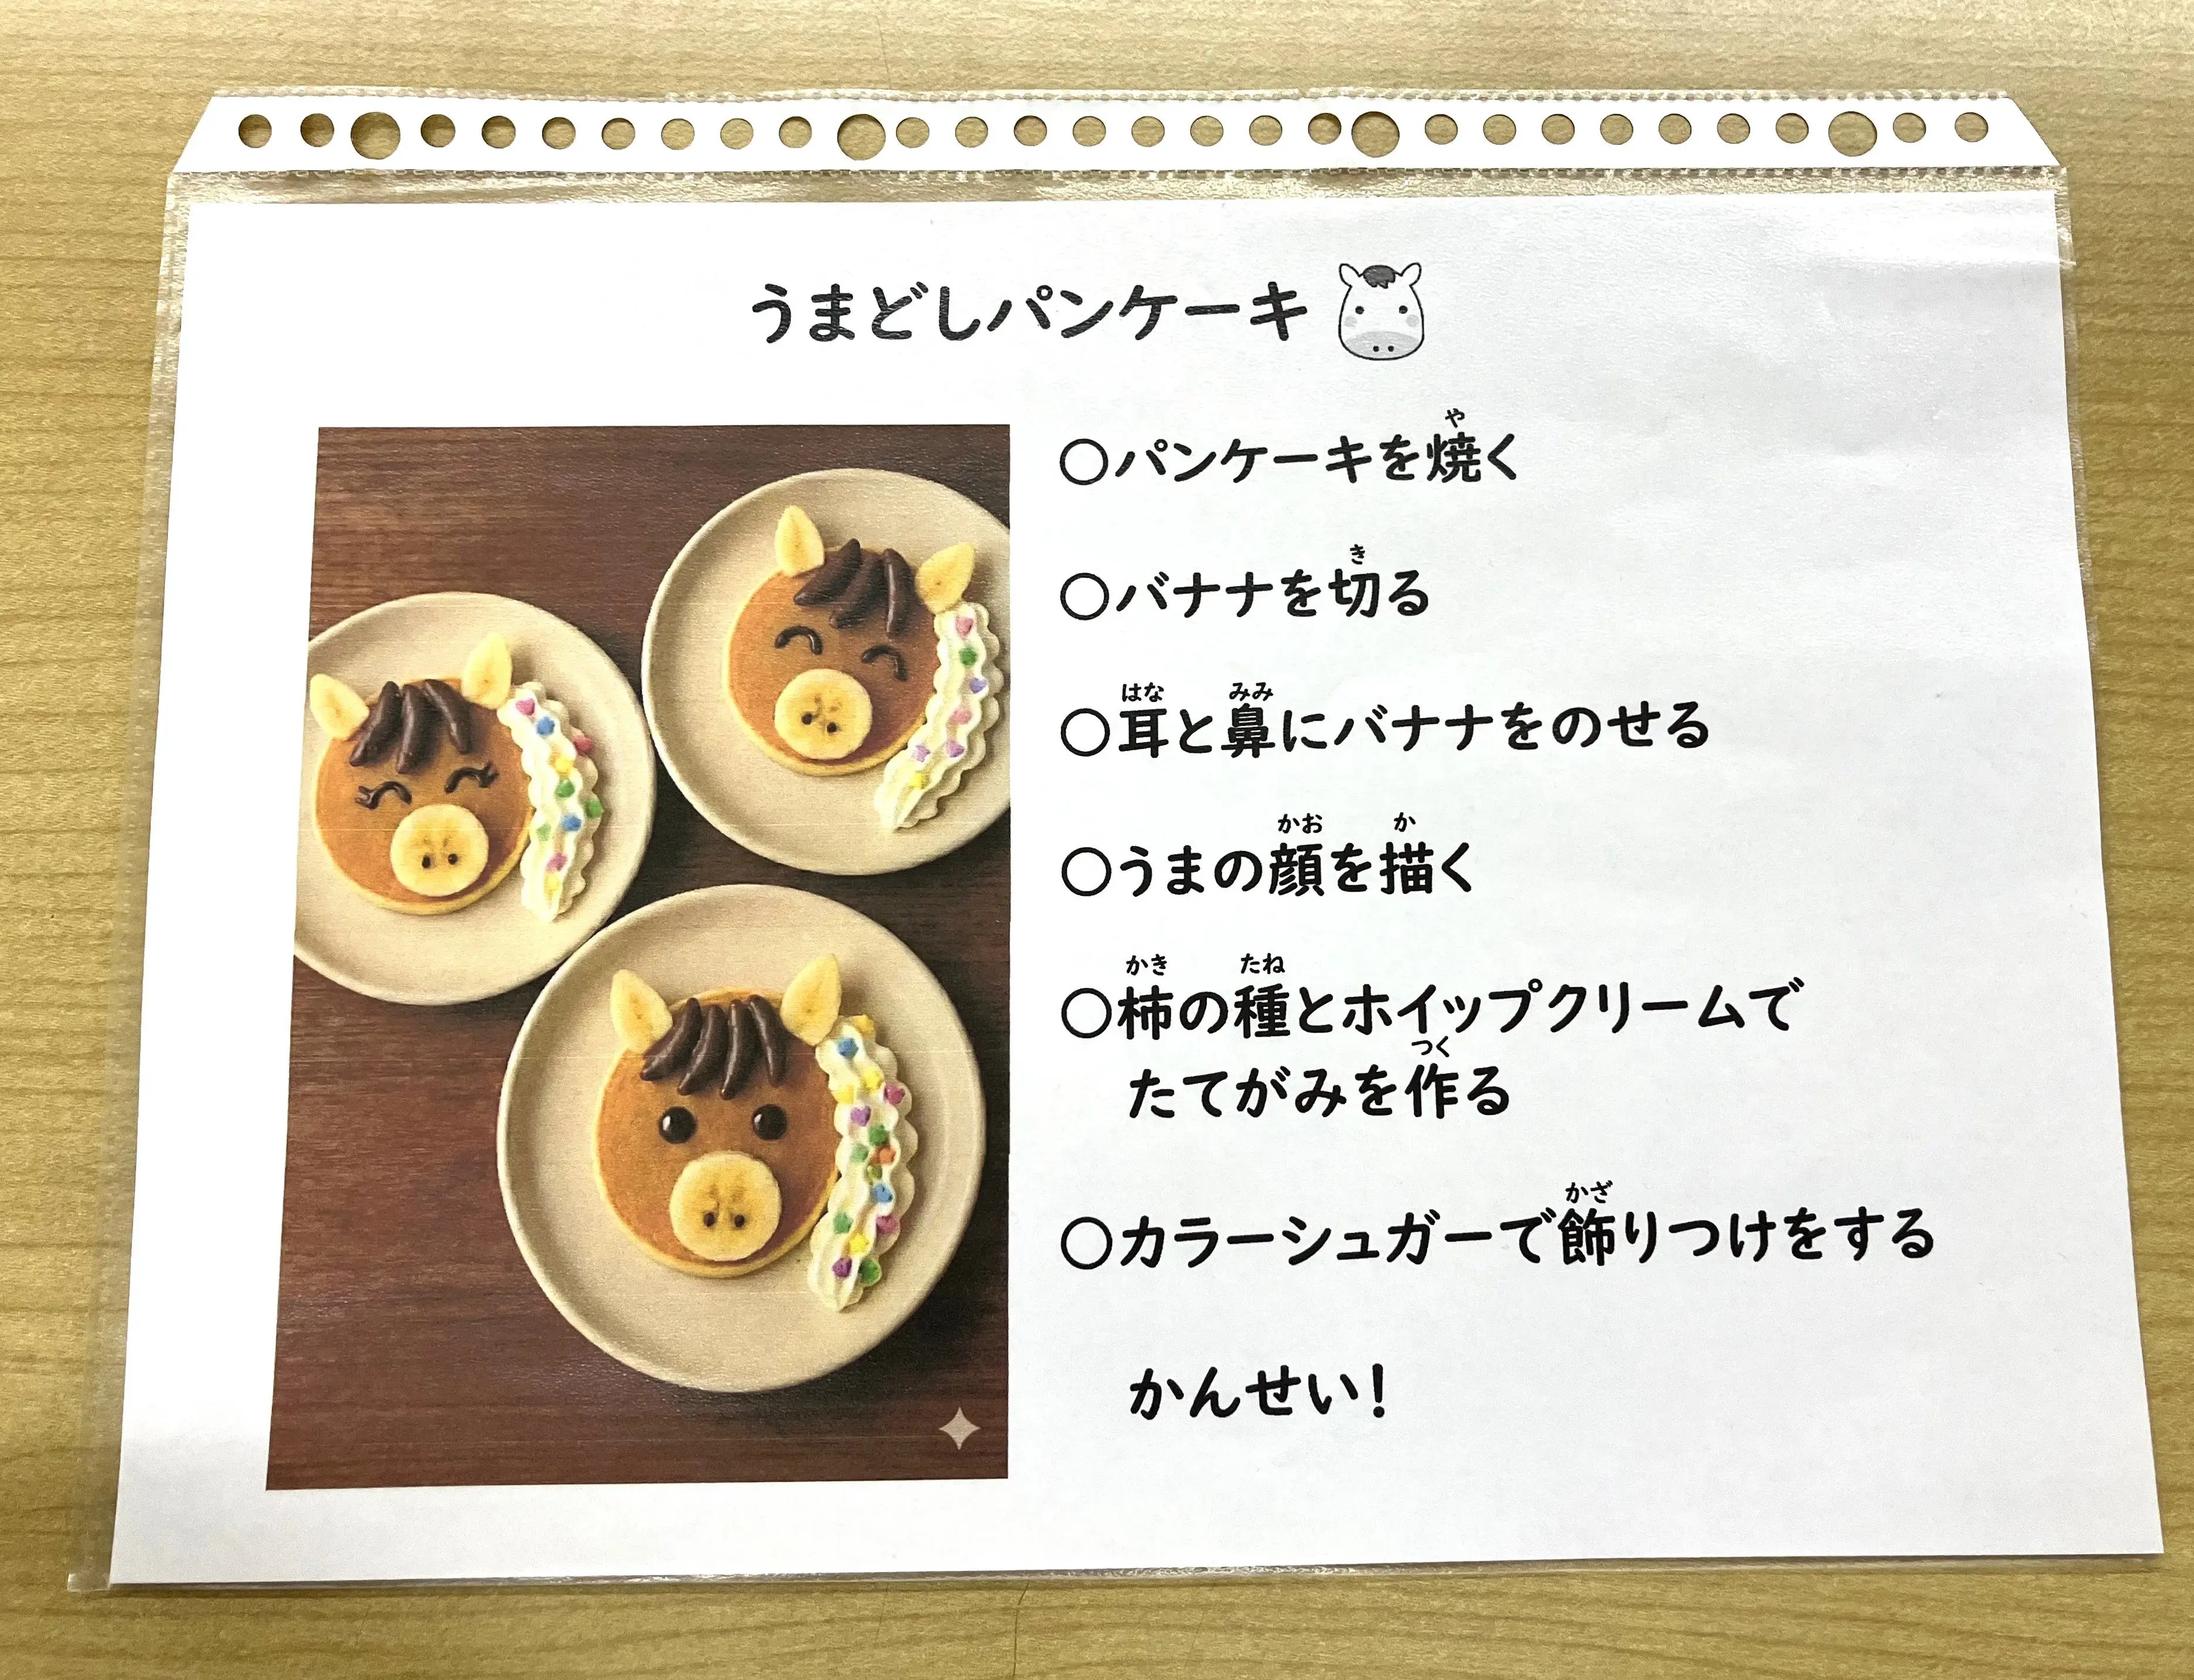 うまどしパンケーキ
や
○パンケーキを焼く
き
○バナナを切る
はな みみ
○耳と鼻にバナナをのせる
かお か
○うまの顔を描く
かき たね
○柿の種とホイップクリームで
つく
たてがみを作る
かざ
○カラーシュガーで飾りつけをする
かんせい！